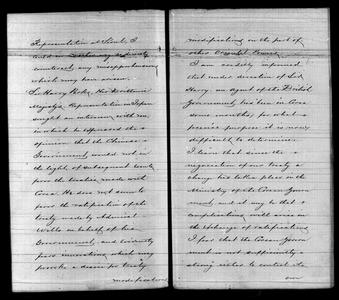 Representation at Seoul I
could in
counteract any misapprehensions
which may have arisen.
Sir Harry Parkes, Her Brittanic
Majesty's Representation in Japan
sought an interview with me,
in which he expressed the
opinion that the Chinese
Government would not in
the light of subsequent events
pose the treaties made with
Corea. He does not seem to
pose the ratification of the
treaty made by Admiral
Wills on behalf of his
Government, and evidently
fears innovations which may
provoke a desire for treaty
modifications
modifications on the part of
other Oriental Powers.
I am credibly informed
that under direction of Sir
Harry, an agent of the British
Government has been in Corea
some months, for what
precise purpose it is now
difficult to determine.
I learn that since the
negotiation of our treaty a
change has taken place in the
Ministry of the Corean Govern
ment, and it may be that
complications will arise on
the exchange of ratifications.
I fear that the Corean Govern
ment is not sufficiently
strong either to control its
own